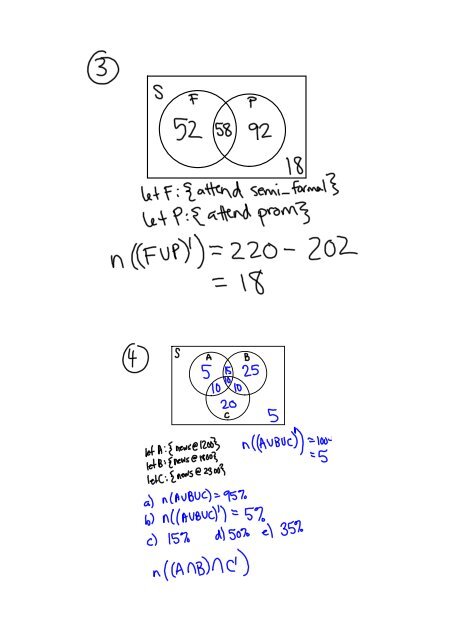 3
S
F P
52 58 92
18
let F: {attend semi-formal}
let P: {attend prom}
n((FUP)') = 220 - 202
= 18
4
S
A B
5 15 25
10 10 10
20
C
5
let A: {news @ 1200}
let B: {news @ 1800}
let C: {news @ 2300}
n((AUBUC)') = 100-
= 5
a) n(AUBUC) = 95%
b) n((AUBUC)') = 5%
c) 15% d) 50% e) 35%
n((A∩B)∩C')